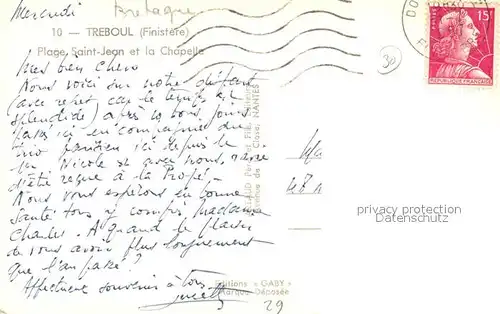 Mercredi
Bretagne
10 — TREBOUL (Finistère)
Plage Saint-Jean et la Chapelle
15F
REPUBLIQUE FRANÇAISE
Mes bien Chers
Nous voici sur notre départ
(avec regret car le temps est
splendide) après 10 bons jours
passés ici en compagnie du
trio parisien ici depuis le
Nicole est avec nous, ravie
d'être reçue à la Propé.
Nous vous espérons en bonne
santé tous y compris Madame
Charles. A quand le plaisir
de vous avoir plus longuement
que l'an passé?
Affectueux souvenirs à tous
NANTES
30
privacy protection
Datenschutz
Editions « GABY »
Marque Déposée
29